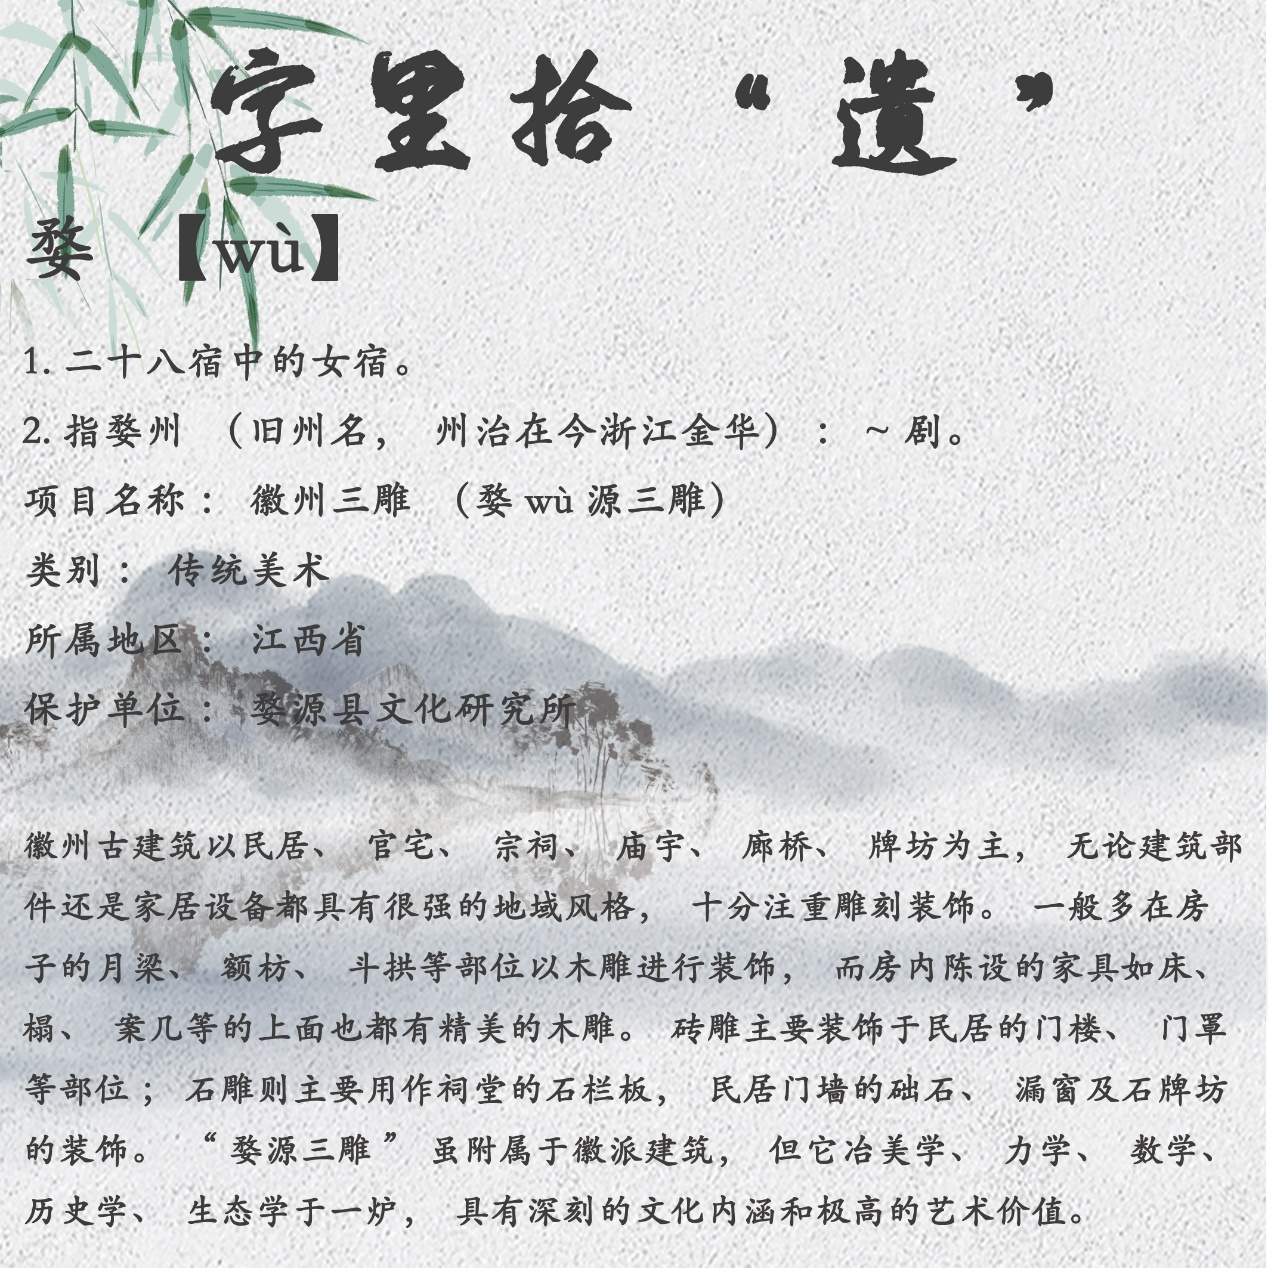 字里拾“遗”
婺 【wù】
1. 二十八宿中的女宿。
2. 指婺州 （旧州名， 州治在今浙江金华）： ~ 剧。
项目名称： 徽州三雕 （婺 wù 源三雕）
类别： 传统美术
所属地区： 江西省
保护单位： 婺源县文化研究所
徽州古建筑以民居、 官宅、 宗祠、 庙宇、 廊桥、 牌坊为主， 无论建筑部
件还是家居设备都具有很强的地域风格， 十分注重雕刻装饰。 一般多在房
子的月梁、 额枋、 斗拱等部位以木雕进行装饰， 而房内陈设的家具如床、
榻、 案几等的上面也都有精美的木雕。 砖雕主要装饰于民居的门楼、 门罩
等部位； 石雕则主要用作祠堂的石栏板， 民居门墙的础石、 漏窗及石牌坊
的装饰。 “婺源三雕” 虽附属于徽派建筑， 但它冶美学、 力学、 数学、
历史学、 生态学于一炉， 具有深刻的文化内涵和极高的艺术价值。